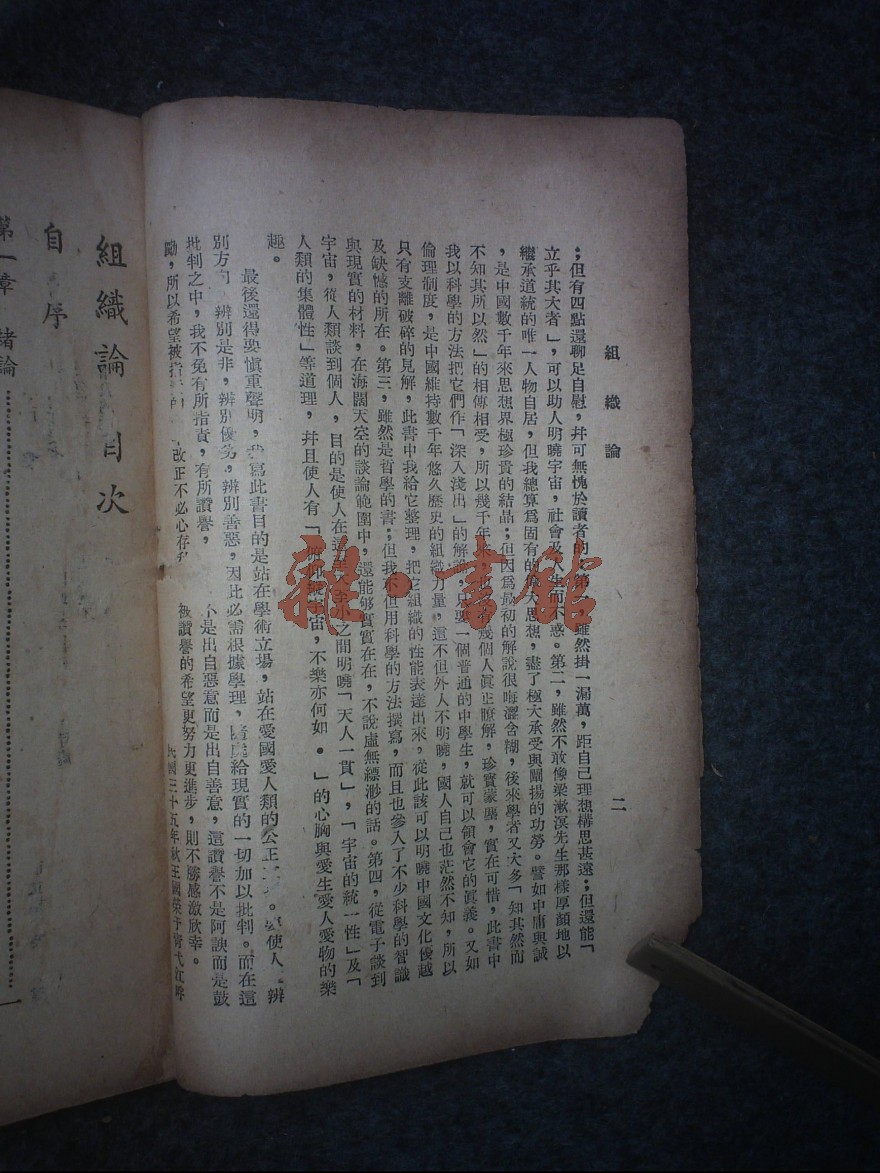 組織論
二
；但有四點還聊足自慰，幷可無愧於讀者的：第一，雖然掛一漏萬，距自己理想構思甚遠；但還能「
立乎其大者」，可以助人明曉宇宙，社會及人生而不惑。第二，雖然不敢像梁漱溟先生那樣厚顏地以
繼承道統的唯一人物自居，但我總算爲固有的思想，盡了極大承受與闡揚的功勞。譬如中庸與誠
，是中國數千年來思想界極珍貴的結晶；但因爲最初的解說很晦澀含糊，後來學者又大多「知其然而
不知其所以然」的相傳相受，所以幾千年來也有幾個人眞正瞭解，珍寶蒙塵，實在可惜，此書中
我以科學的方法把它們作「深入淺出」的解，只要一個普通的中學生，就可以領會它的眞義。又如
倫理制度，是中國維持數千年悠久歷史的組織力量，這不但外人不明曉，國人自己也茫然不知，所以
只有支離破碎的見解，此書中我給它整理，把它組織的性能表達出來，從此該可以明曉中國文化優越
及缺憾的所在。第三，雖然是哲學的書；但我不但用科學的方法撰寫，而且也參入了不少科學的智識
與現實的材料，在海闊天空的談論範圍中，還能够實實在在，不說虛無縹渺的話。第四，從電子談到
宇宙，從人類談到個人，目的是使人在之間明曉「天人一貫」，「宇宙的統一性」及「
人類的集體性」等道理，幷且使人有「俯仰縱宇宙，不樂亦何如。」的心胸與愛生愛人愛物的樂
趣。
最後還得要愼重聲明，我寫此書目的是站在學術立場，站在愛國愛人類的公正。使人辨
別方向 辨別是非，辨別優劣，辨別善惡，因此必需根據學理，隨處給現實的一切加以批判。而在這
批判之中，我不免有所指責，有所讚譽，不是出自惡意而是出自善意，這讚譽不是阿諛而是鼓
勵，所以希望被指 改正不必心存 被讚譽的希望更努力更進步，則不勝感激欣幸。
民國三十五年秋王國榮于
組織論 目次
自序
第一章 緒論
一